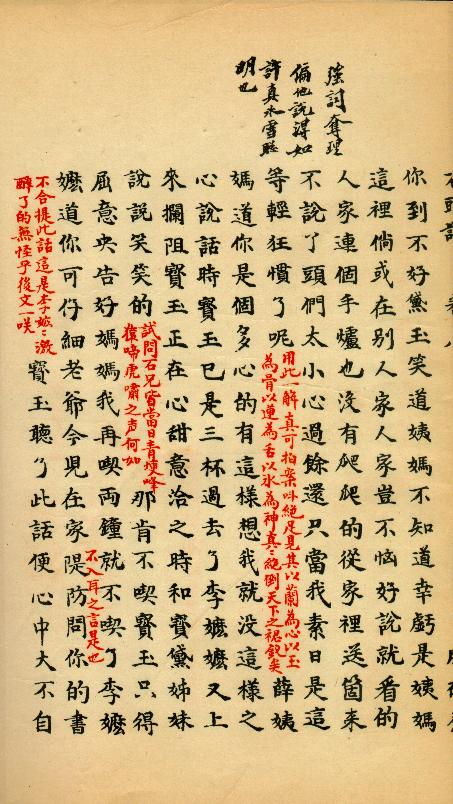 強詞奪理
偏他說得如
許真氷雪聡
明也
你到不好黛玉笑道姨媽不知道幸虧是姨媽
這裡倘或在别人家人家豈不恼好說就看的
人家連個手爐也没有爬爬的從家裡送箇来
不說了頭們太小心過餘還只當我素日是這
等輕狂慣了呢
用此一解真可拍案呌絶足見其以蘭為心以玉
為骨以蓮為舌以氷為神真〻絶倒天下之裙釵矣
薛姨
媽道你是個多心的有這樣想我就没這樣之
心說話時寳玉已是三杯過去了李嬷嬷又上
來攔阻寳玉正在心甜意洽之時和寳黛姊妹
說說笑笑的
試問石兄皆當日青埂峰
猿啼虎嘯之声何如
那肯不喫寳玉只得
屈意央告好媽媽我再喫兩鍾就不喫了李嬷
不入耳之言是也
嬷道你可仔細老爺今児在家隄防問你的書
不合提此話這是李嬷〻激
醉了的無怪乎後文一咲
寳玉聽了此話便心中大不自